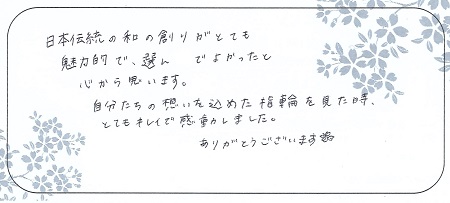 日本伝統の和の創りがとても
魅力的で、選んでよかったと
心から思います。
自分たちの想いを込めた指輪を見た時、
とてもキレイで感動しました。
ありがとうございます